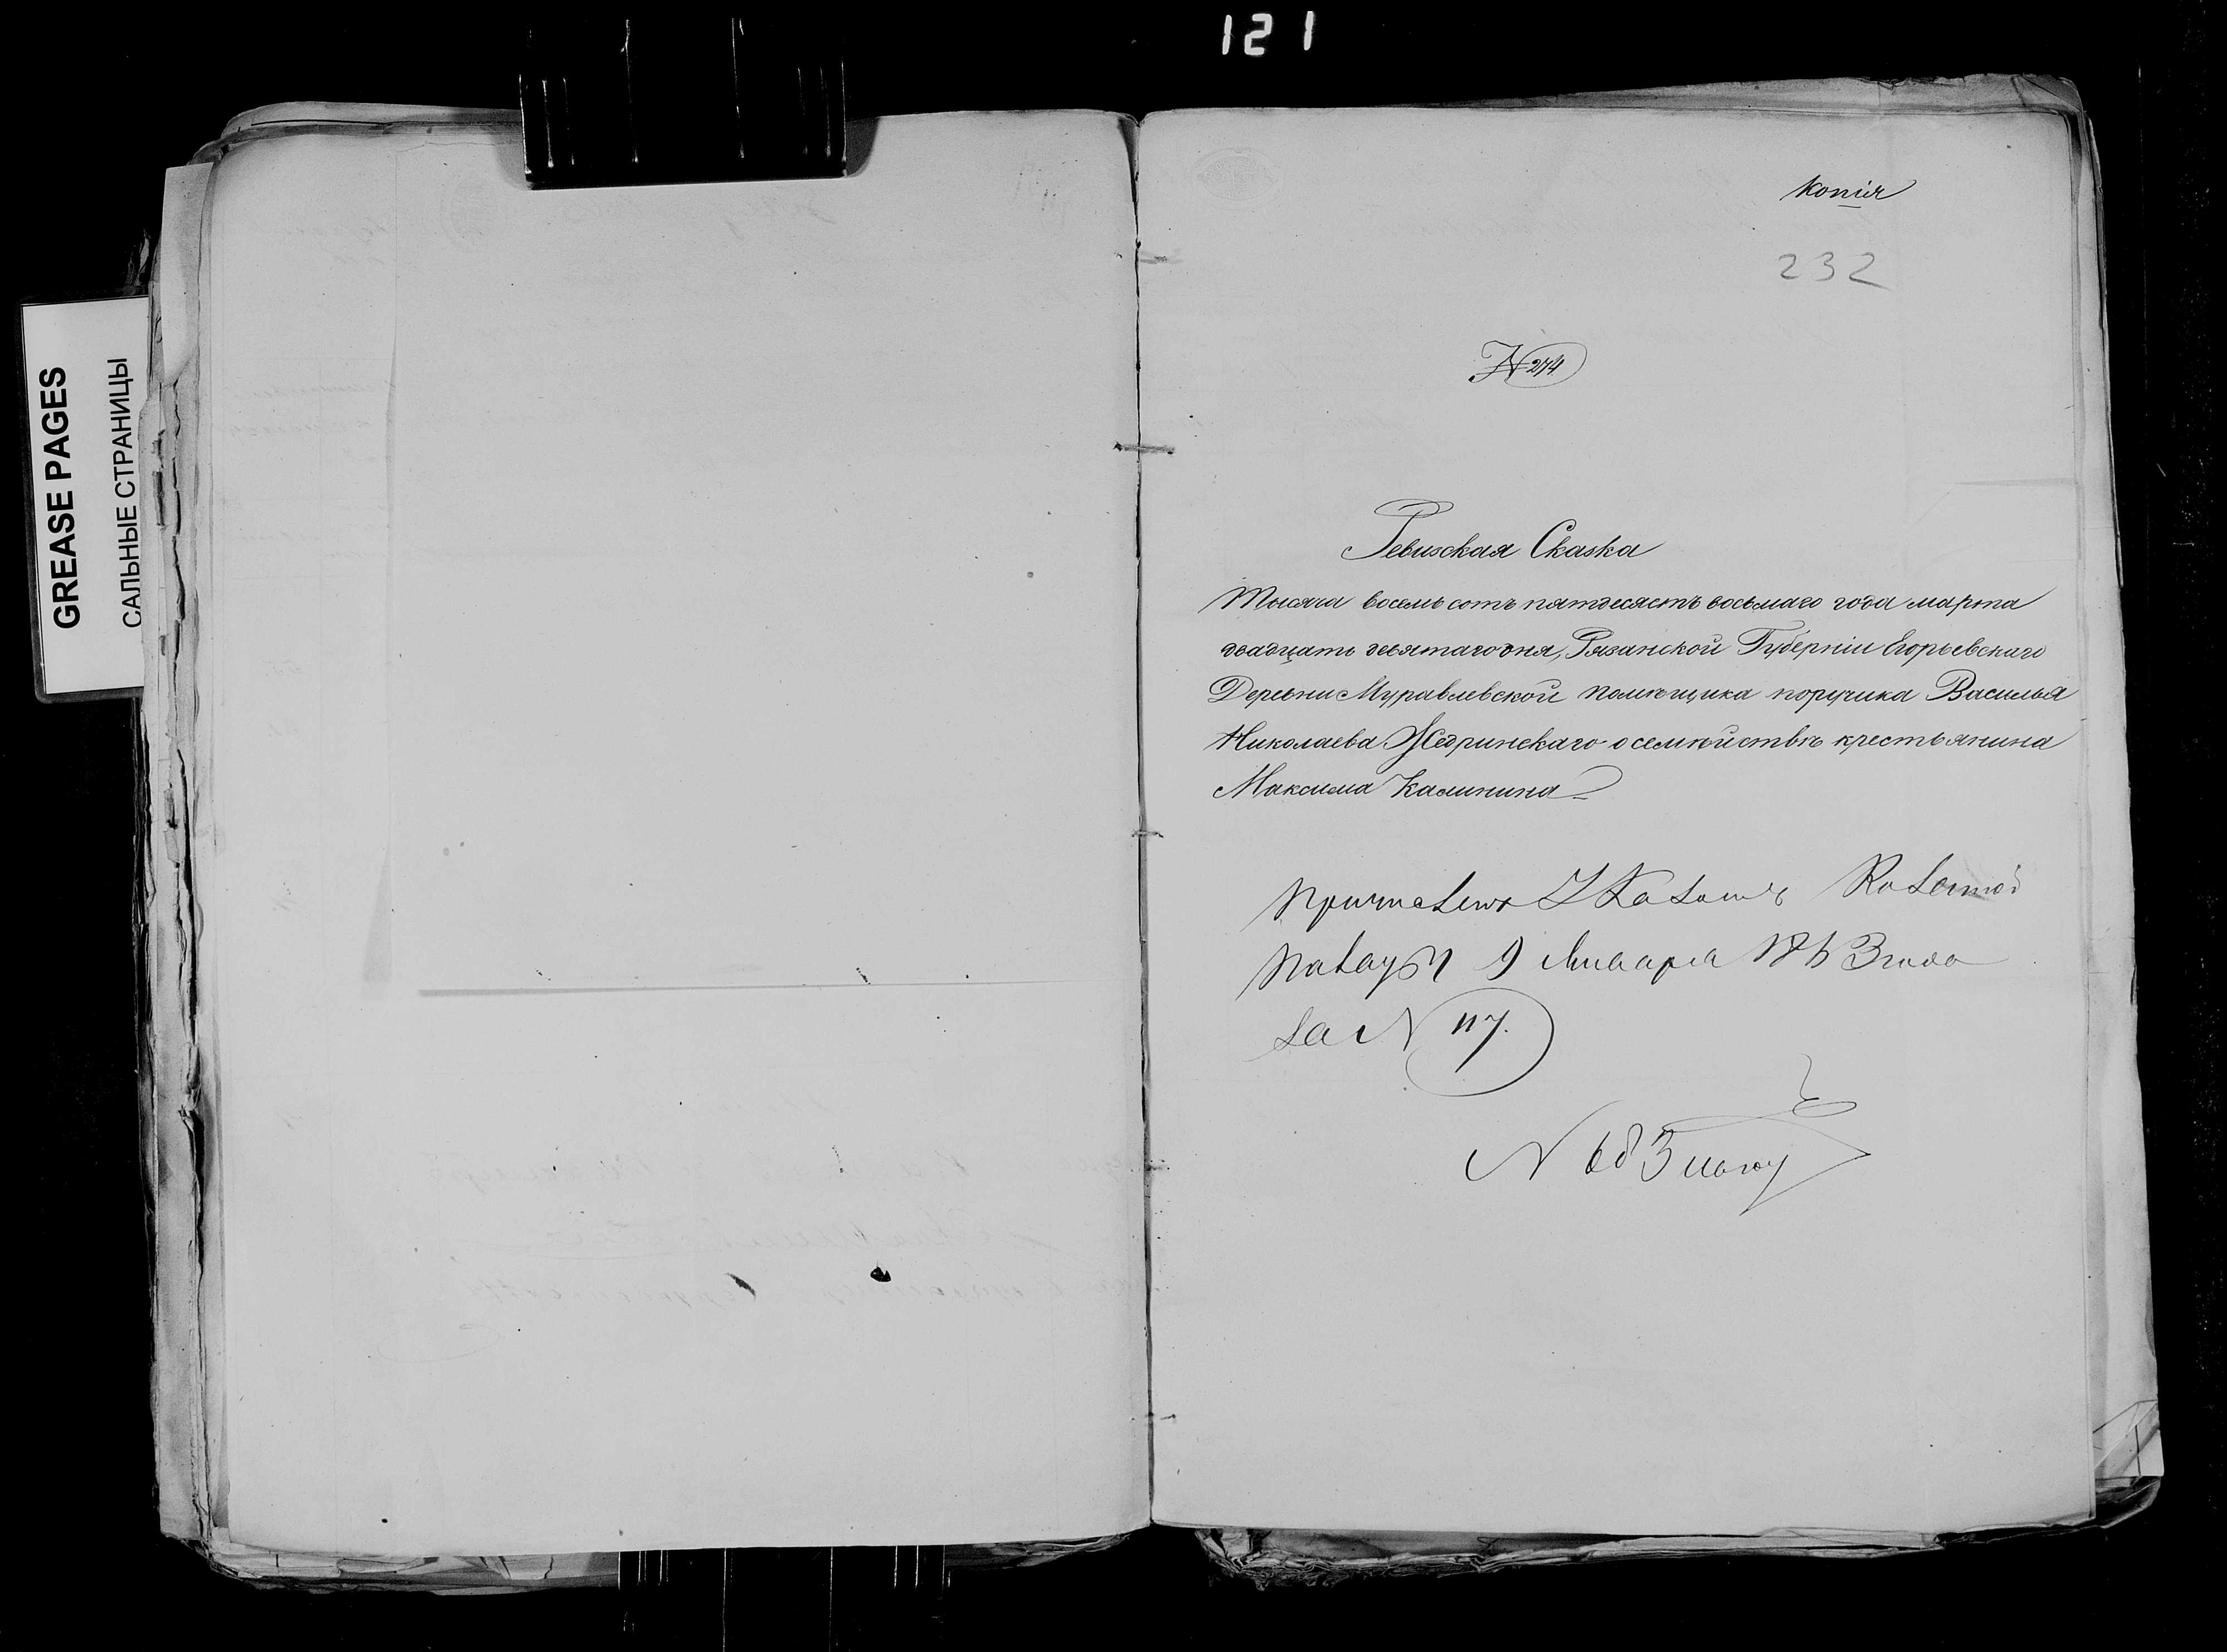 121
GREASE PAGES
САЛЬНЫЕ СТРАНИЦЫ
копія
232
№ 274
Ревизская Сказка
Тысяча восемь сотъ пятдесятъ восьмаго года марта
двадцать девятаго дня, Рязанской Губерніи Егорьевскаго
Деревни Муравлевской помѣщика поручика Василья
Николаева Жедринскаго о семѣйствѣ крестьянина
Максима Калинина
Причислены Указомъ Казенной
Палаты 9 Января 1863 года
за N 117.
N 68